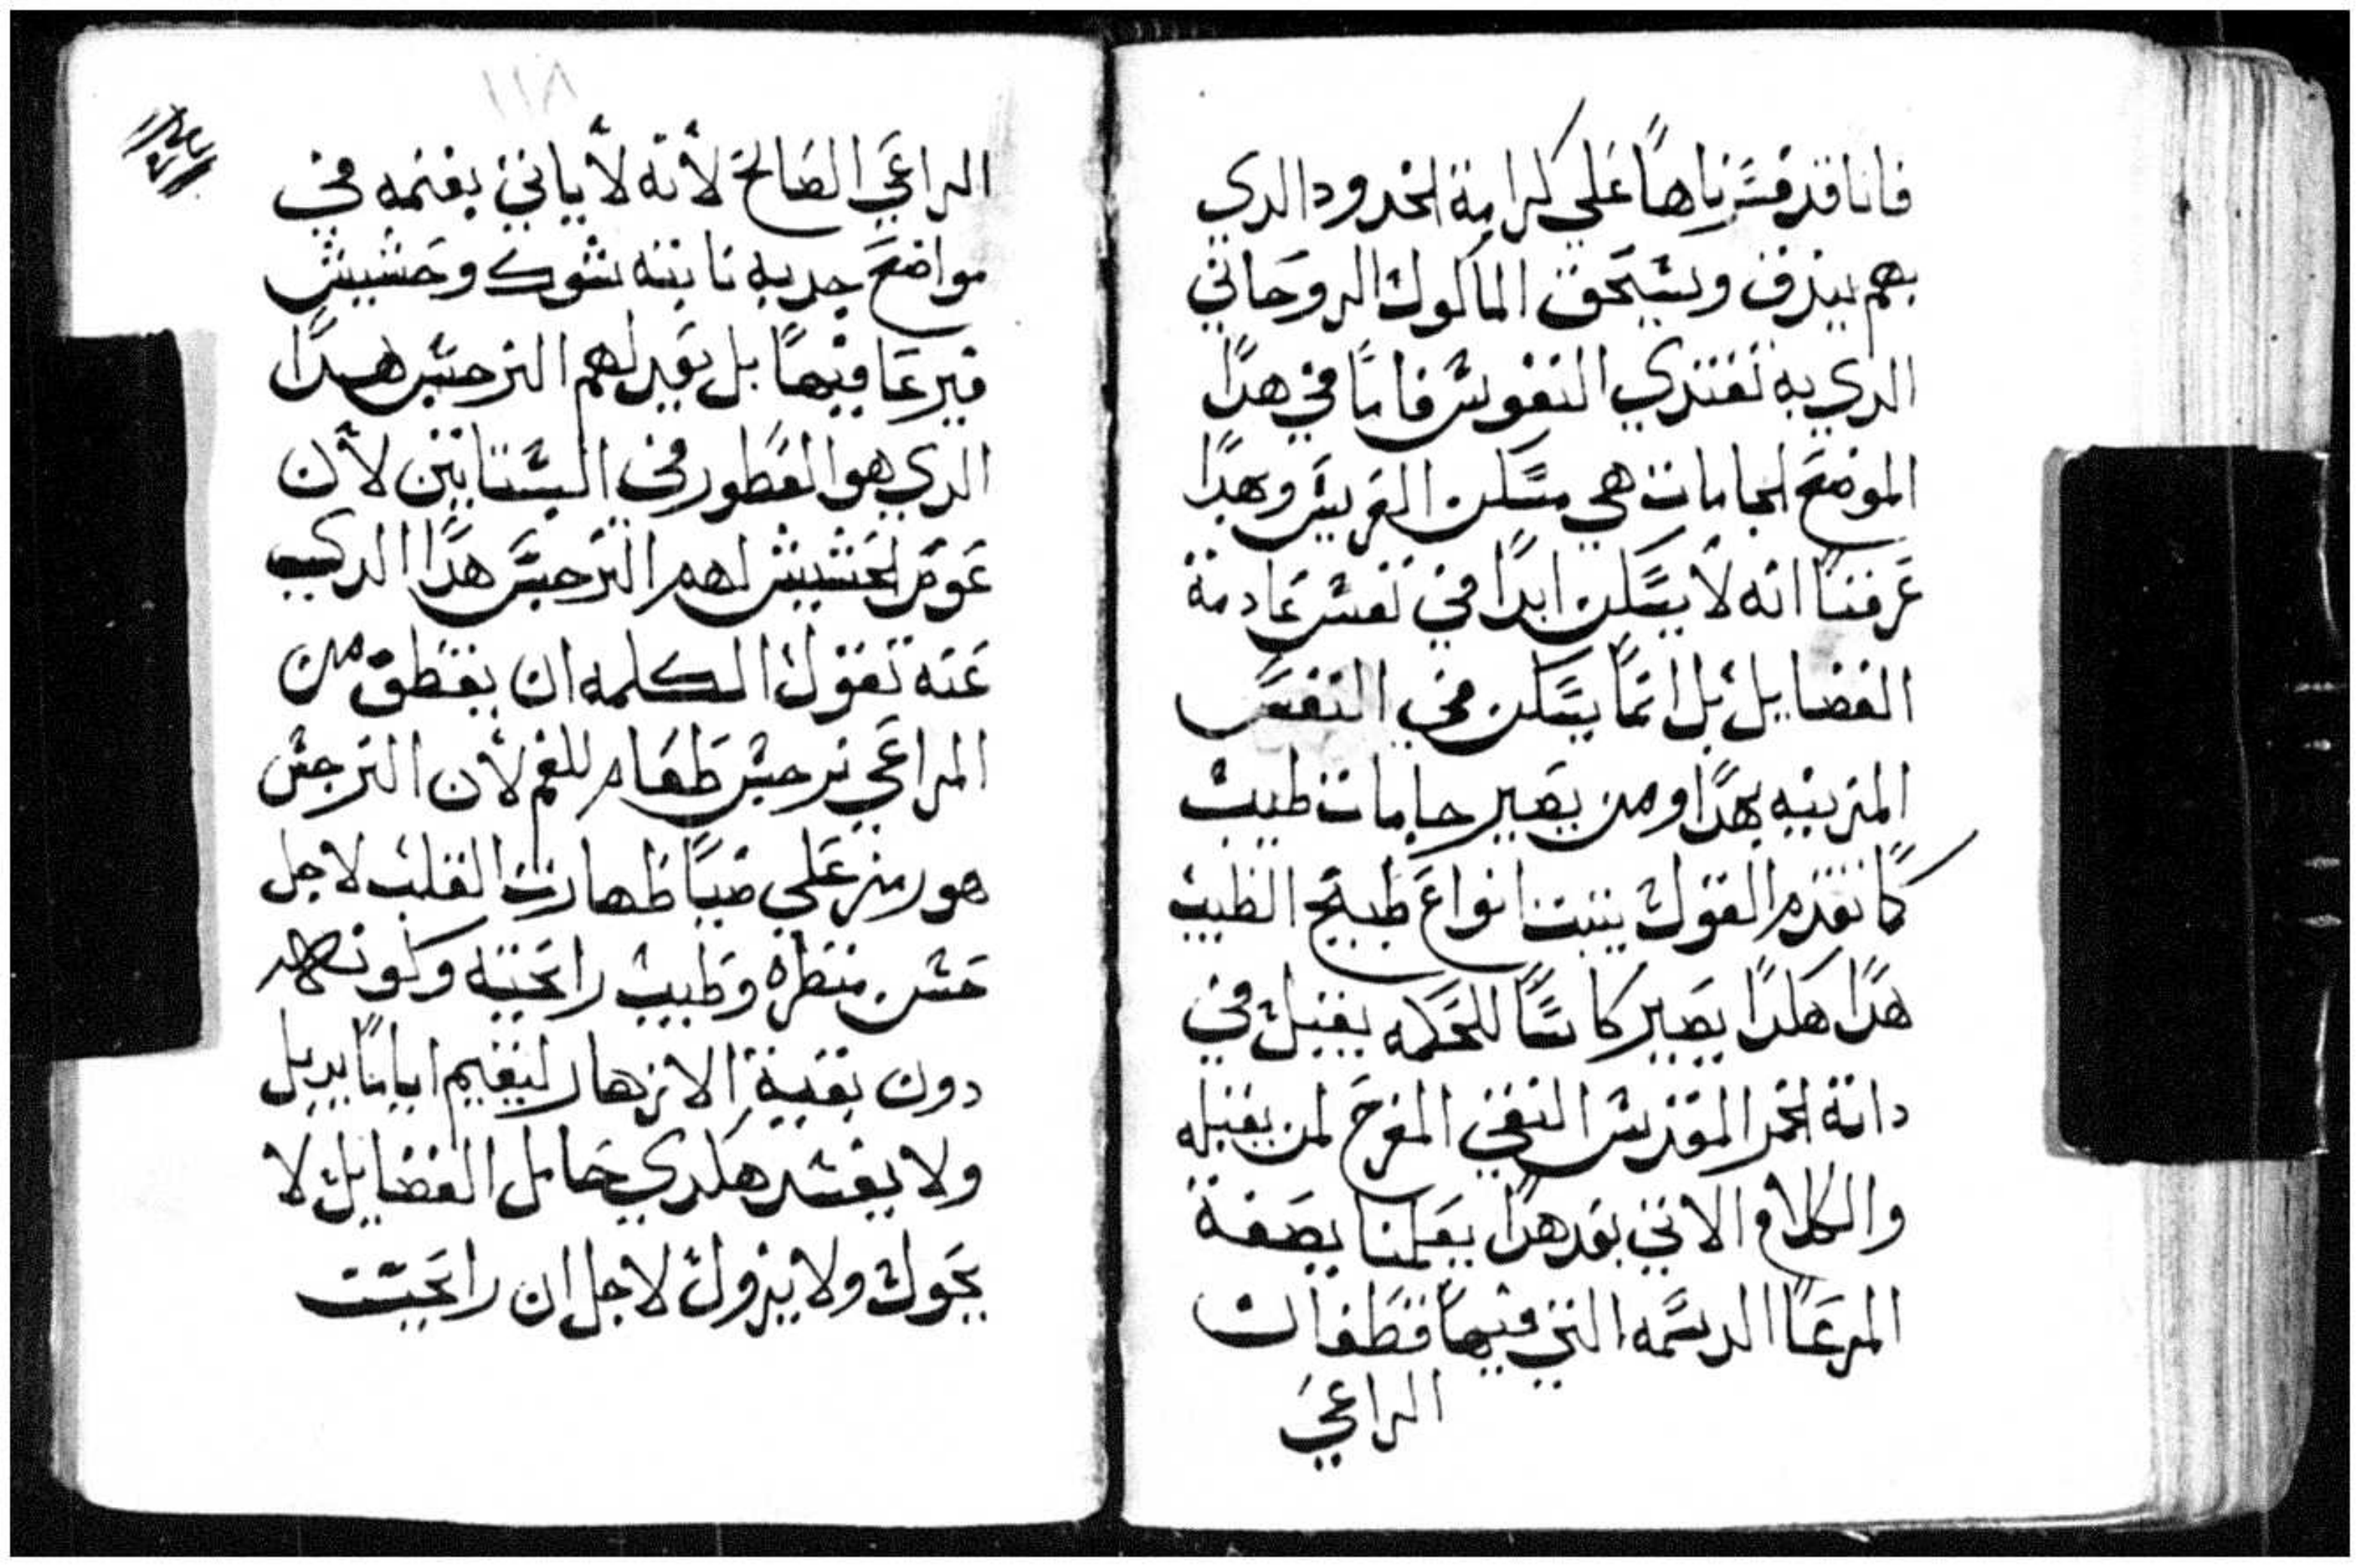 فاننا قد فسرناها علي كرامة الخدود الدي
بهم يبزق ويسحق الماكول الروحاني
الدي به تغتدي النفوس فاما في هدا
الموضع الجامات هي مسكن العريس وهدا
عرفنا انه لا يسكن ابدًا في نفس عادمة
الفضايل بل انما يسكن في النفس
المتزينه بهدا ومن يصير جامات طيب
كما تقدم القول ينبت انواع طبيخ الطيب
هدا هكدا يصير كاسًا للحكمه يقبل في
داته الخمر المقدس النقي المفرح لمن يقبله
والكلام الاتي بعد هدا يعلمنا بصفة
المرعا الدسمه التي فيها قطعان
الراعي
الراعي الصالح لأنه لأياتي بغنمه في
مواضع جدبه نابته شوك وحشيش
فيرعا فيها بل يعد لهم النرجس هدا
الدي هو العطور في البساتين لأن
عوض الحشيش لهم النرجس هدا الدي
عنه تقول الكلمه ان يقطف من
المراعي نرجس طعام للغنم لأن النرجس
هو رمز علي ضيا طهارت القلب لاجل
حسن منظره وطيب رايحته وكونه
دون بقية الازهار ليقيم اياما يدبل
ولا يفسد هكدي حامل الفضايل لا
يحول ولا يزول لاجل ان رايحت